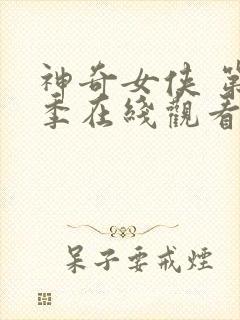 神奇女侠 第
季在线觀看
呆子要戒煙